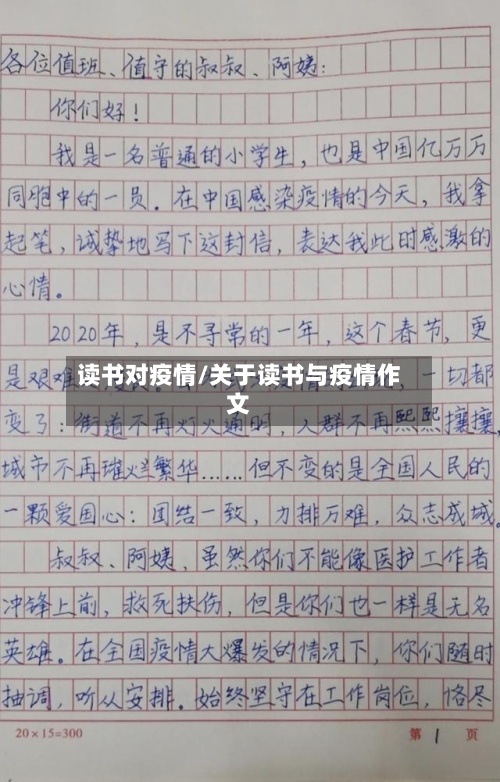 各位值班、值守的叔叔、阿姨:
你们好!
我是一名普通的小学生,也是中国亿万万
同胞中的一员。在中国感染疫情的今天,我拿
起笔,诚挚地写下这封信,表达我此时感激的
心情。
2020年,是不寻常的一年,这个春节,更
是艰难
读书对疫情/关于读书与疫情作
文
一切都
变了:街道不再灯火通明,人群不再熙熙攘攘,
城市不再璀烂繁华……但不变的是全国人民的
一颗爱国心:团结一致,力排万难,众志成城。
叔叔、阿姨,虽然你们不能像医护工作者
冲锋上前,救死扶伤,但是你们也一样是无名
英雄。在全国疫情大爆发的情况下,你们随时
抽调,听从安排。始终坚守在工作岗位,恪尽
20×15=300
第1页